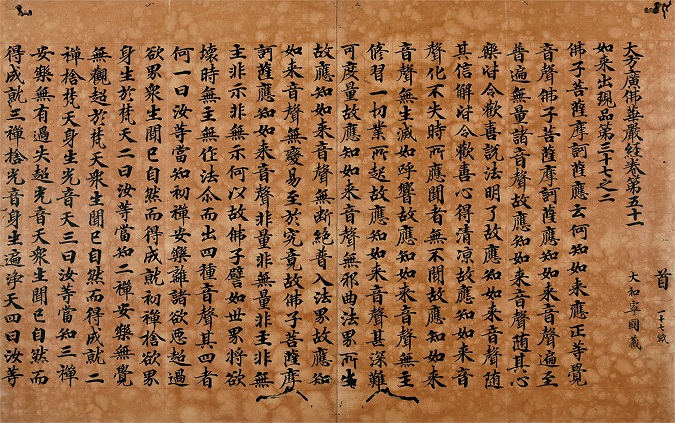 大方廣佛華嚴經卷第五十一
首 二十七紙
如來出現品第三十七之二
大和寧國藏
佛子菩薩摩訶薩應云何知如來應正等覺
音聲佛子菩薩摩訶薩應知如來音聲遍至
普遍無量諸音聲故應知如來音聲隨其心
樂皆令歡喜說法明了故應知如來音聲隨
其信解皆令歡喜心得清涼故應知如來音
聲化不失時所應聞者無不聞故應知如來
音聲無生滅如呼響故應知如來音聲無主
修習一切業所起故應知如來音聲甚深難
可度量故應知如來音聲無邪曲法界所生
故應知如來音聲無斷絕普入法界故應知
如來音聲無變易至於究竟故佛子菩薩摩
訶薩應知如來音聲非量非無量非主非無
主非示非無示何以故佛子譬如世界將欲
壞時無主無作法尒而出四種音聲其四者
何一曰汝等當知初禪安樂離諸欲惡超過
欲界衆生聞已自然而得成就初禪捨欲界
身生於梵天二曰汝等當知二禪安樂無覺
無觀超於梵天衆生聞已自然而得成就二
禪捨梵天身生光音天三曰汝等當知三禪
安樂無有過失超光音天衆生聞已自然而
得成就三禪捨光音身生遍淨天四曰汝等